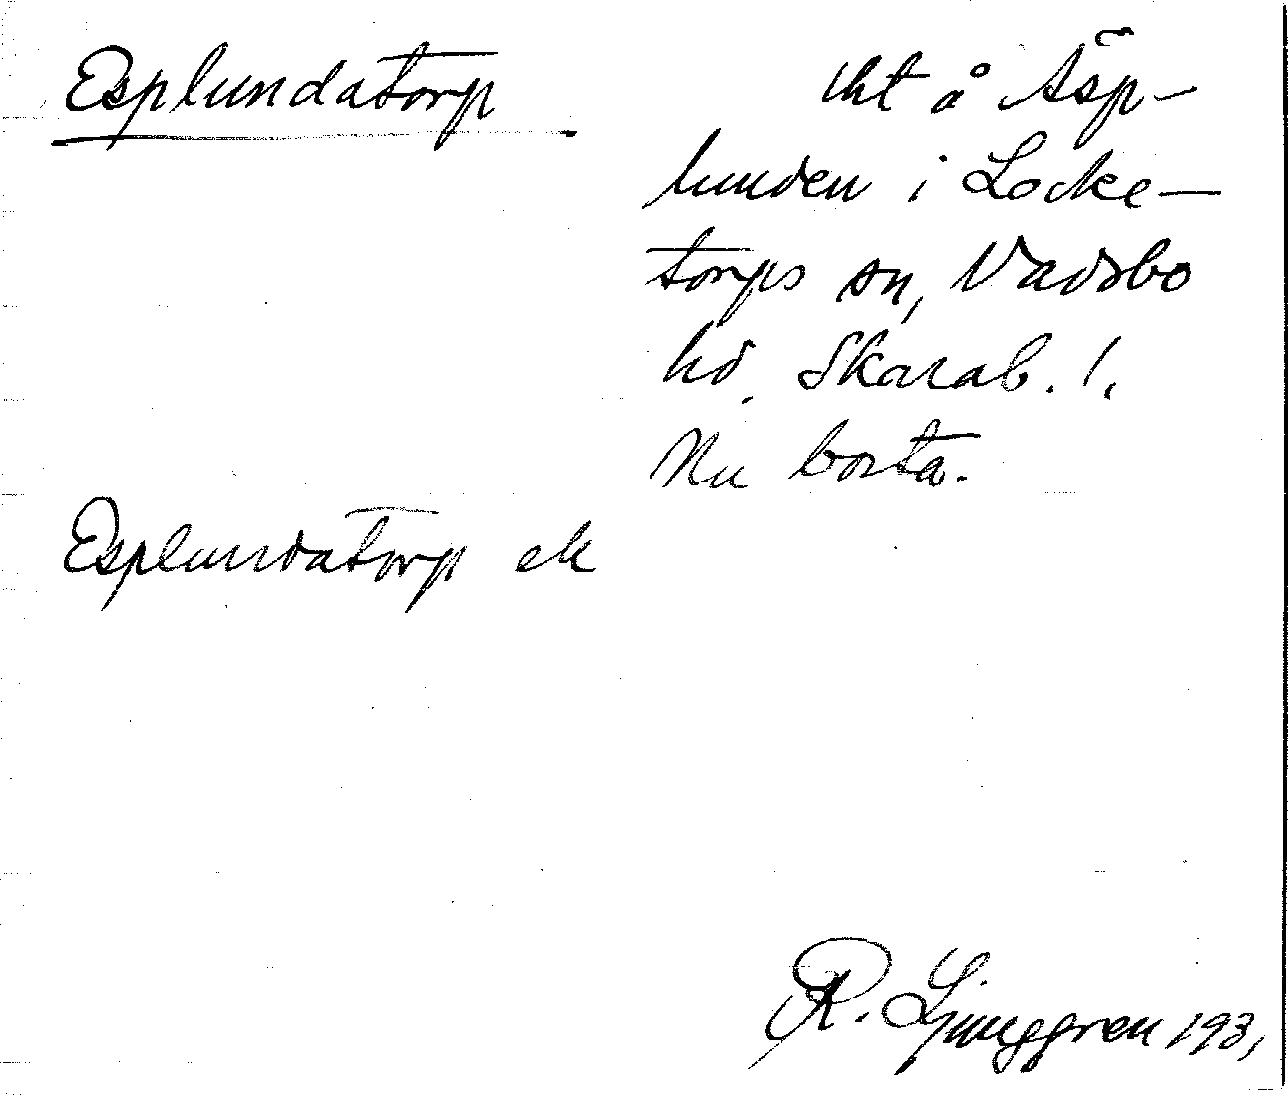 Esplundatorp
tht å Äsp-
lunden i Locke-
torps sn, Vadsbo
hd. Skarab. l.
Nu borta.
Esplundatorp ek
R. Ljunggren 193,